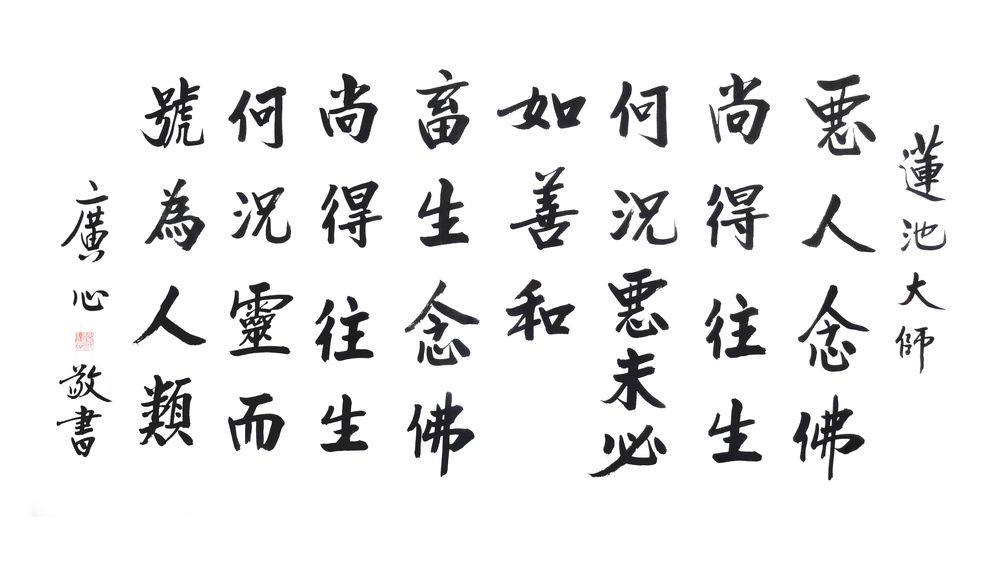 蓮池大師
惡人念佛
尚得往生
何況惡未必
如善和
畜生念佛
尚得往生
何況靈而
號為人類
廣心敬書